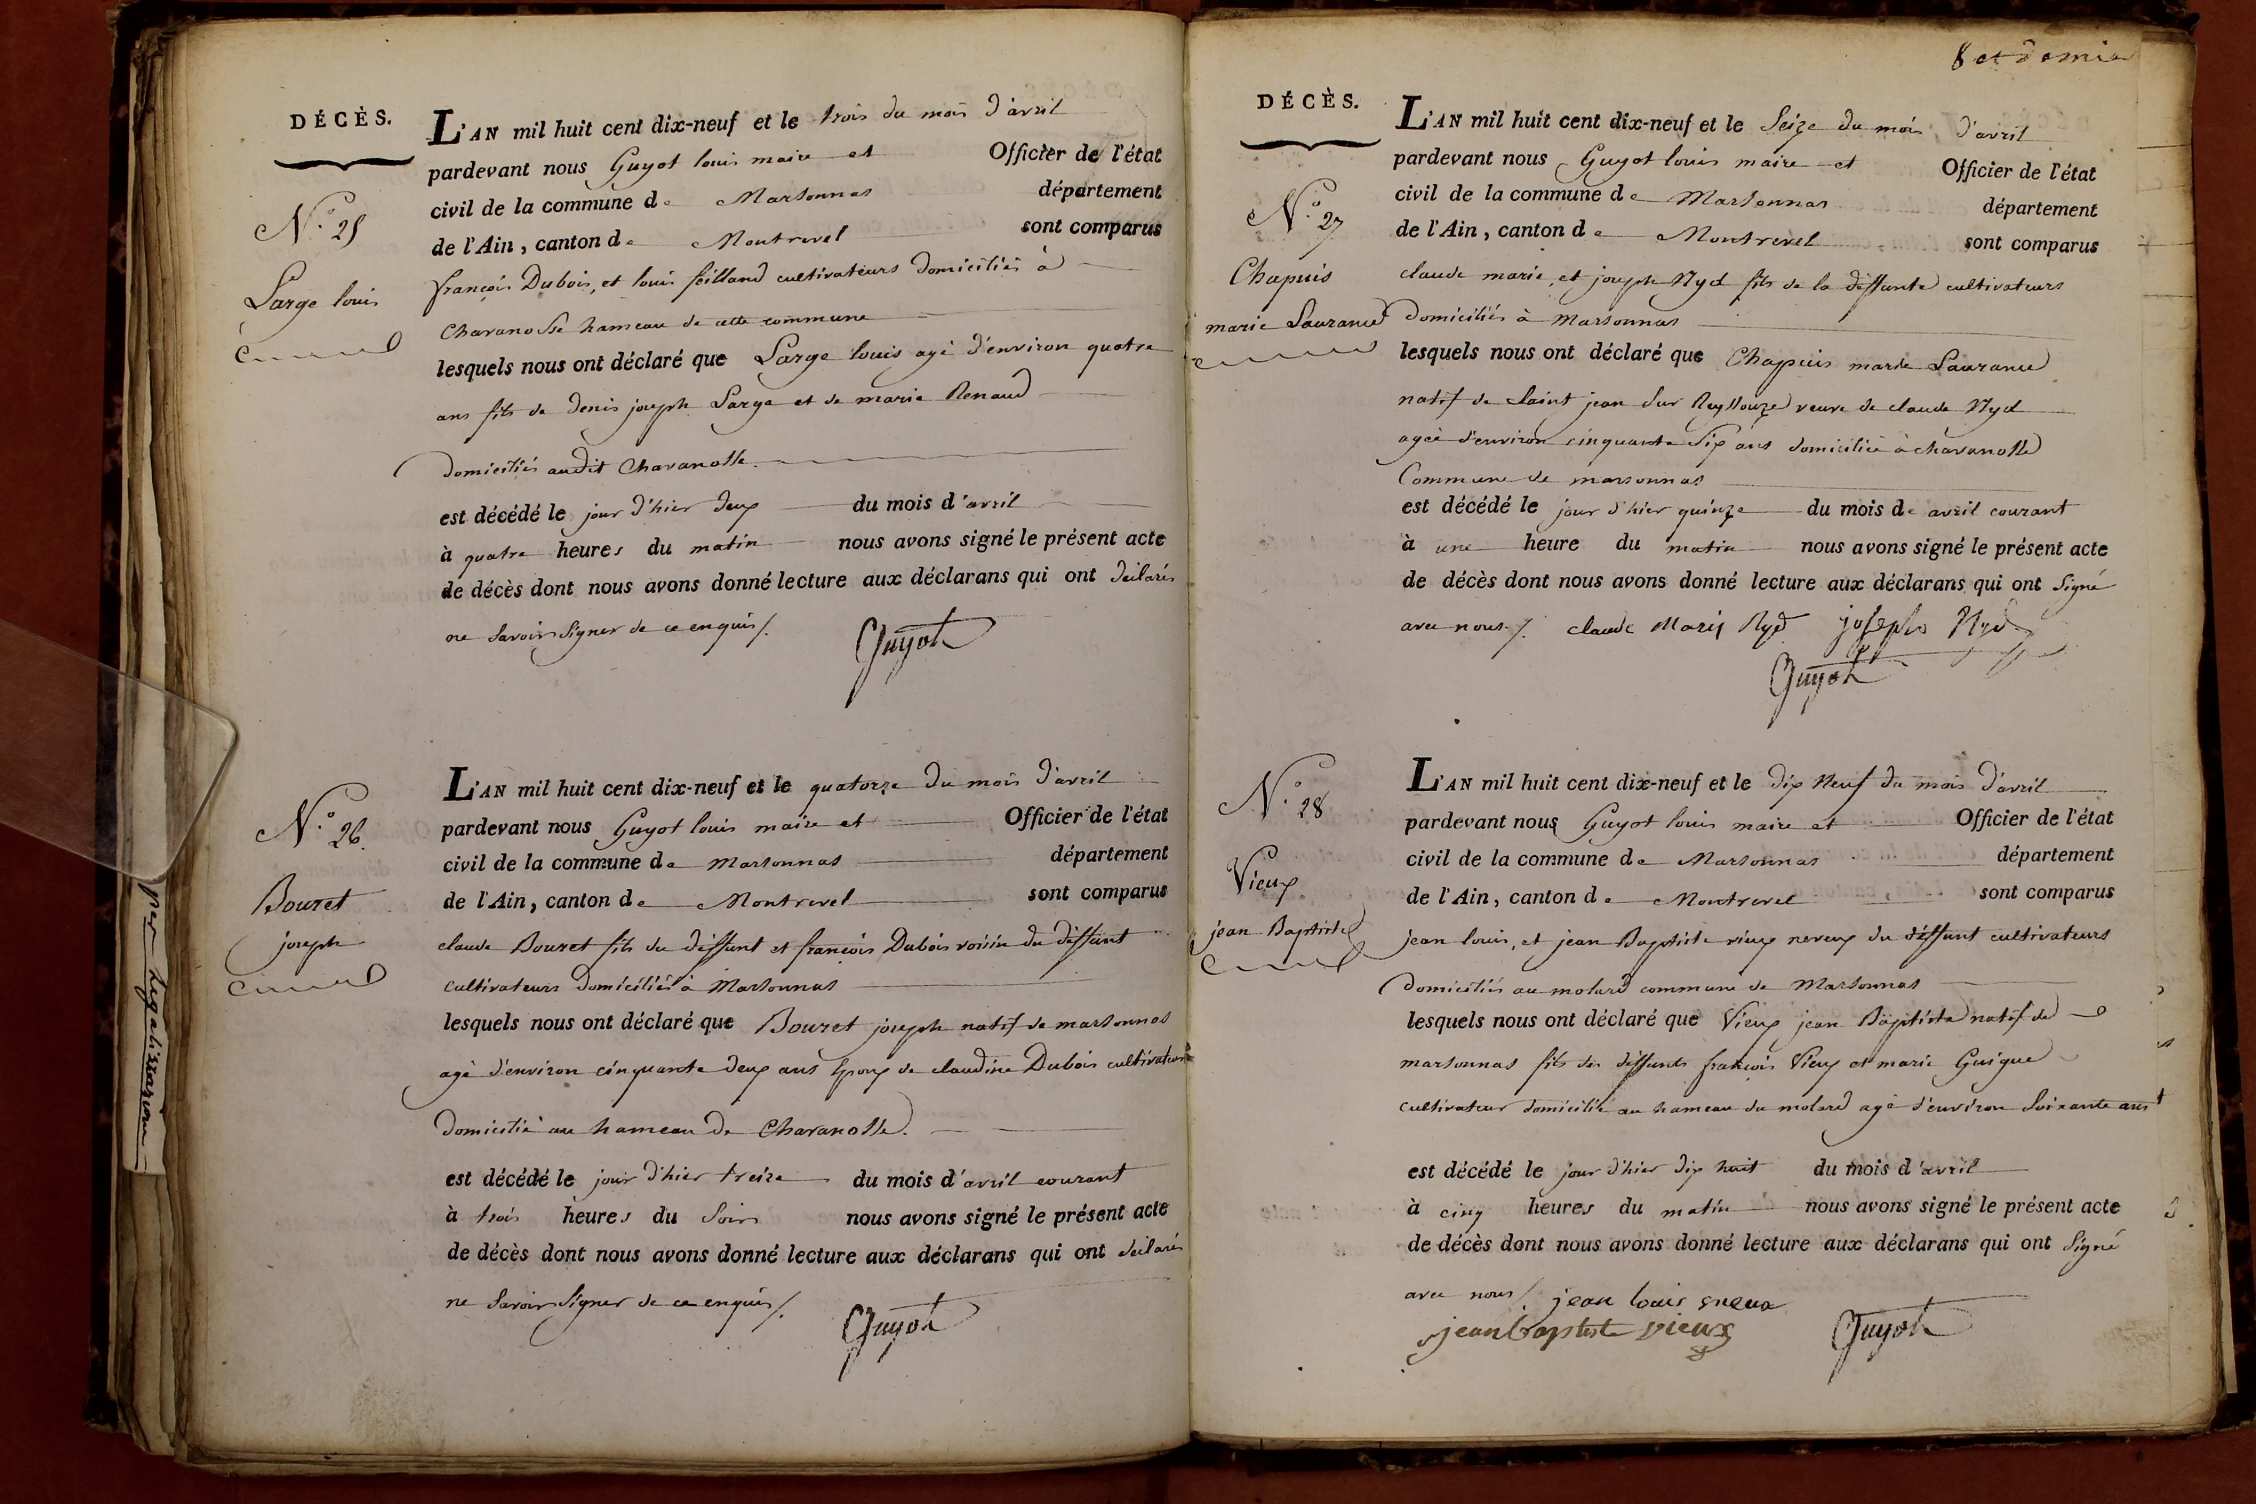 DÉCÈS.
N.° 25
Large louis
L'AN mil huit cent dix-neuf et le trois du mois d'avril
pardevant nous Guyot louis maire et Officier de l'état
civil de la commune de Marsonnas département
de l'Ain, canton de Montrevel sont comparus
françois Dubois, et louis feilland cultivateurs domiciliés à
Charanosse hameau de cette commune
lesquels nous ont déclaré que Large louis agé d'environ quatre
ans fils de denis joseph Large et de marie Renaud
domiciliés audit Charanosse.
est décédé le jour d'hier deux du mois d'avril
à quatre heures du matin nous avons signé le présent acte
de décès dont nous avons donné lecture aux déclarans qui ont déclarés
ne savoir signer de ce enquis /.
Guyot
N.° 26.
Bouret
joseph
L'AN mil huit cent dix-neuf et le quatorze du mois d'avril
pardevant nous Guyot louis maire et Officier de l'état
civil de la commune de Marsonnas département
de l'Ain, canton de Montrevel sont comparus
claude Bouret fils du déffunt et françois Dubois voisin du déffunt
cultivateurs domiciliés à Marsonnas
lesquels nous ont déclaré que Bouret joseph natif de marsonnas
agé d'environ cinquante deux ans Epoux de claudine Dubois cultivateur
domicilié au hameau de Charanosse.
est décédé le jour d'hier treize du mois d'avril courant
à trois heures du soir nous avons signé le présent acte
de décès dont nous avons donné lecture aux déclarans qui ont déclarés
ne savoir signer de ce enquis /.
Guyot
per Legalissazione
8 et demie
DÉCÈS.
N.° 27
Chapuis
marie Laurance
L'AN mil huit cent dix-neuf et le Seize du mois d'avril
pardevant nous Guyot louis maire et Officier de l'état
civil de la commune de Marsonnas département
de l'Ain, canton de Montrevel sont comparus
claude marie, et joseph Nyd fils de la déffunte cultivateurs
domiciliés à Marsonnas
lesquels nous ont déclaré que Chapuis marie Laurance
natif de Saint jean sur Reyssouze veuve de claude Nyd
agée d'environ cinquante Six ans domiciliée à charanosse
Commune de marsonnas
est décédé le jour d'hier quinze du mois de avril courant
à une heure du matin nous avons signé le présent acte
de décès dont nous avons donné lecture aux déclarans qui ont Signé
avec nous /. claude Marie Nyd joseph Nyd
Guyot
N.° 28
Vieux
jean Baptiste
L'AN mil huit cent dix-neuf et le dix Neuf du mois d'avril
pardevant nous Guyot louis maire et Officier de l'état
civil de la commune de Marsonnas département
de l'Ain, canton de Montrevel sont comparus
jean louis, et jean Baptiste vieux neveux du déffunt cultivateurs
domiciliés au molard commune de Marsonnas
lesquels nous ont déclaré que Vieux jean Baptiste natif de
marsonnas fils des déffunts françois Vieux et marie Guigue
cultivateur domicilié au hameau du molard agé d'environ Soixante ans
est décédé le jour d'hier dix huit du mois d'avril
à cinq heures du matin nous avons signé le présent acte
de décès dont nous avons donné lecture aux déclarans qui ont Signé
avec nous /. jean louis
jean baptiste vieux Guyot